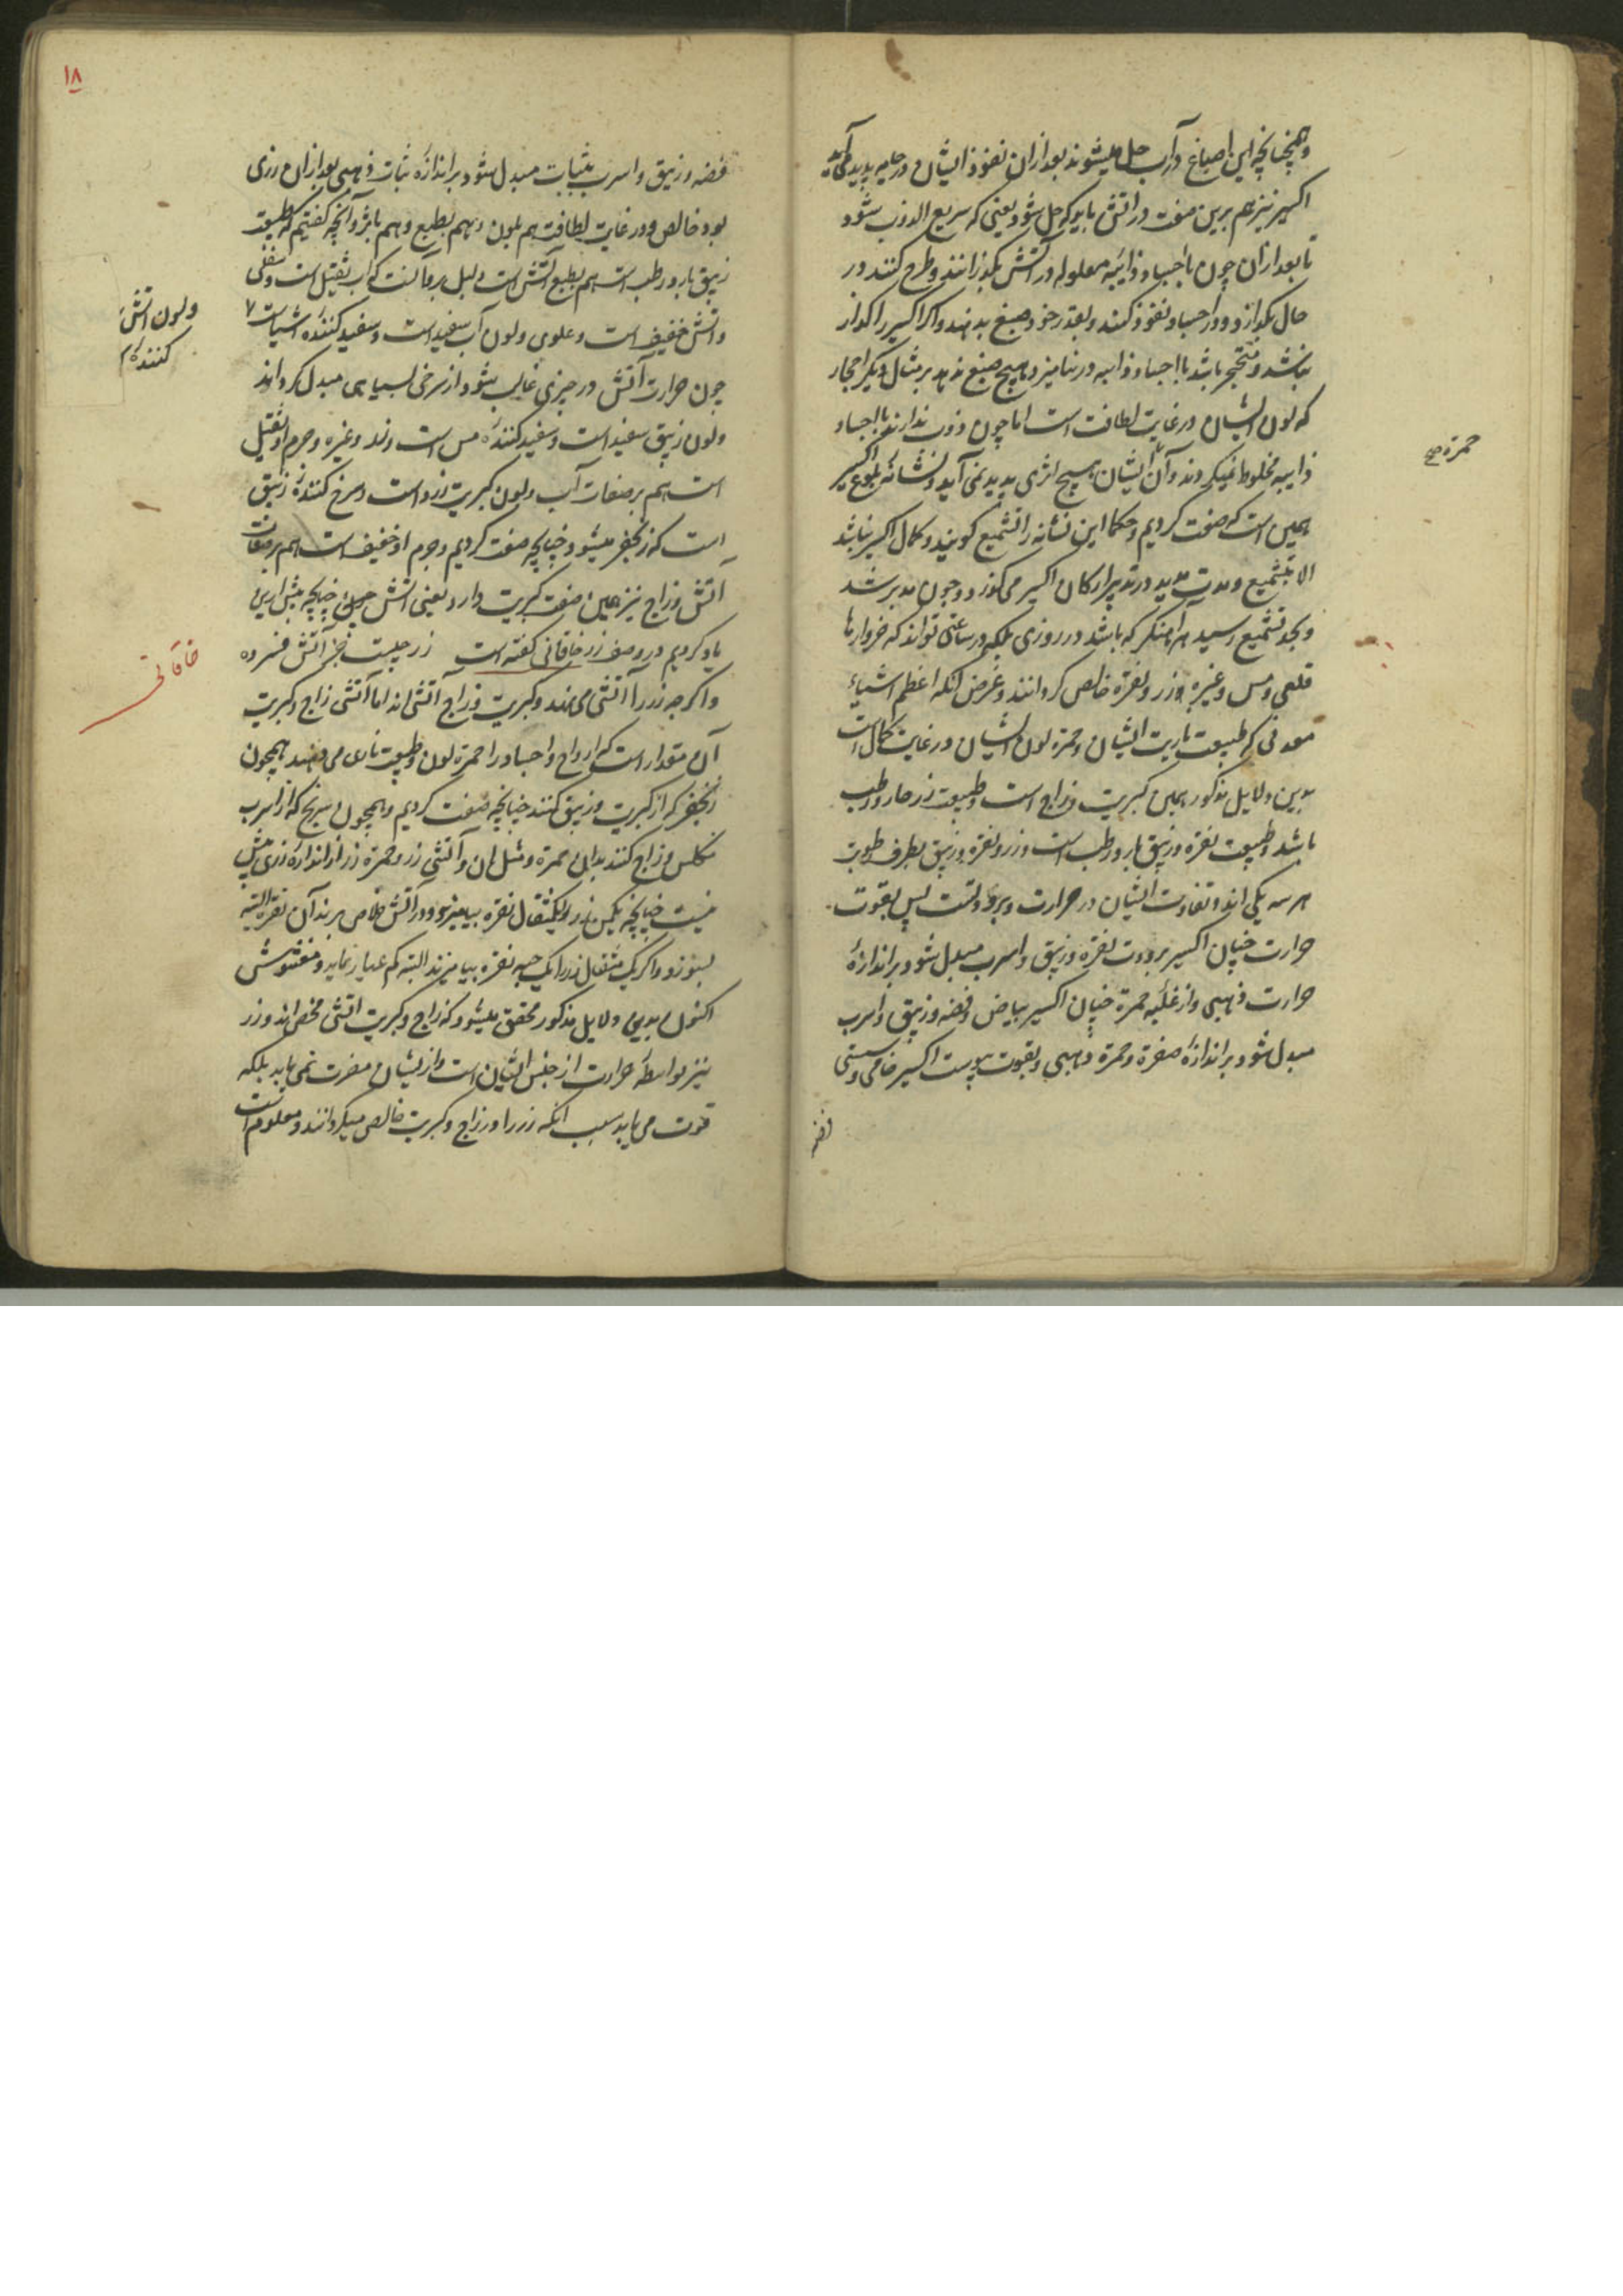 وهمچنانچه این اصباغ در آب حل میشوند بعد ازان نفوذ ایشان در جامه پدید می‌آید
اکسیر نیز هم برین صفت در اتش باید که حل شود یعنی که سریع الذوب شود
تا بعد ازان چون با اجساد ذایبه معلوله در آتش بگدازانند و طرح کنند در
حال بگدازد و در اجساد نفوذ کند و بقدر خود صبغ بدهد و اکر اکسیر را کداز
نباشد و متحجر باشد با اجساد ذایبه در نیامیزد و هیچ صبغ ندهد بر مثال دیکر احجار
که لون ایشان در غایت لطافت است اما چون ذوب ندارند با اجساد
ذایبه مخلوط نمیکردند و از ایشان هیچ اثری پدید نمی آید و نشانه بلوغ اکسیر
همین است که صفت کردیم و حکما این نشانه را تشمیع کویند و کمال اکسیر نباشد
الا بتشمیع و مدت مدید در تدبیر ارکان اکسیر می کذرد و چون مدبر شد
و بحد تشمیع رسید هر آهنکر که باشد در روزی بلکه در ساعتی تواند که خروارها
قلعی و مس و غیره زر و نقره خالص کردانند و غرض آنکه اعظم اشیاء
معدنی که طبیعت ناریت ایشان و حمرة لون ایشان در غایت کمال است
بدین دلایل مذکور همین کبریت و زاج است و طبیعت زر حار و رطب
باشد و طبیعت نقره و زیبق بارد و رطب است و زر و نقره و زیبق بطرف رطوبت
هر سه یکی اند و تفاوت ایشان در حرارت و برودتست پس بقوت
حرارت چنان اکسیر برودت نقره و زیبق و اسرب مبدل شود بر اندازهٔ
حرارت ذهبی و از غلبه حمرة چنان اکسیر بیاض فضه و زیبق و اسرب
مبدل شود بر اندازهٔ صفرة و حمرة ذهبی و بقوت یبوست اکسیر خامی و سستی
فضه
حمرة صح
۱۸
فضه و زیبق و اسرب بثبات مبدل شود بر اندازهٔ ثبات ذهبی بعد ازان زری
بود خالص و در غایت لطافت هم بلون و هم بطبع و هم باثر و آنچه کفتیم که طبیعت
زیبق بارد و رطب است هم بطبع آتش است دلیل بر ما آنست که آب ثقیل است و سفلی
واتش خفیف است و علوی و لون آب سفید است و سفید کننده اشیاست ۷
چون حرارت آتش در چیزی غالب شود از سرخی بسیاهی مبدل کرداند
ولون زیبق سفید است و سفید کننده مس است و زر و غیره و جرم او ثقیل
است هم بر صفات آب و لون کبریت زرد است و سرخ کنندهٔ زیبق
است که زنجفر میشود چنانچه صفت کردیم و جرم او خفیف است هم بر صفات
آتش و زاج نیز همین صفت کبریت دارد یعنی اتش چنانچه پیش ازین
یاد کردیم در وصف زر خاقانی کفته است زر چیست جز آتش فسرده
و اکرچه زر را آتشی می نهند و کبریت و زاج آتشی اند اما آتشی زاج و کبریت
آن مقدار است که ارواح و اجساد را حمرة لون و طبیعت ناری می دهند همچون
زنجفر که از کبریت و زیبق کنند چنانچه صفت کردیم و همچون سرنج که از اسرب
مکلس و زاج کنند بدان حمرة و مثل آن و آتشی زر و حمرة زر از اندازه زری بیش
نیست چنانچه یکمن زر و یکمثقال نقره بیامیزند و در آتش خلاص برند آن نقره البته
بسوزد و اکر یک مثقال زر را یک حبه نقره بیامیزند البته کم عیار نماید و مغشوش
اکنون بدین دلایل مذکور محقق میشود که زاج و کبریت اتشی محض اند و زر
نیز بواسطهٔ حرارت از جنس ایشان است و از ایشان مضرت نمی یابد بلکه
قوت می یابد سبب آنکه زر را در زاج و کبریت خالص میکردانند و معلوم است
ولون اتش
کننده
خاقانی